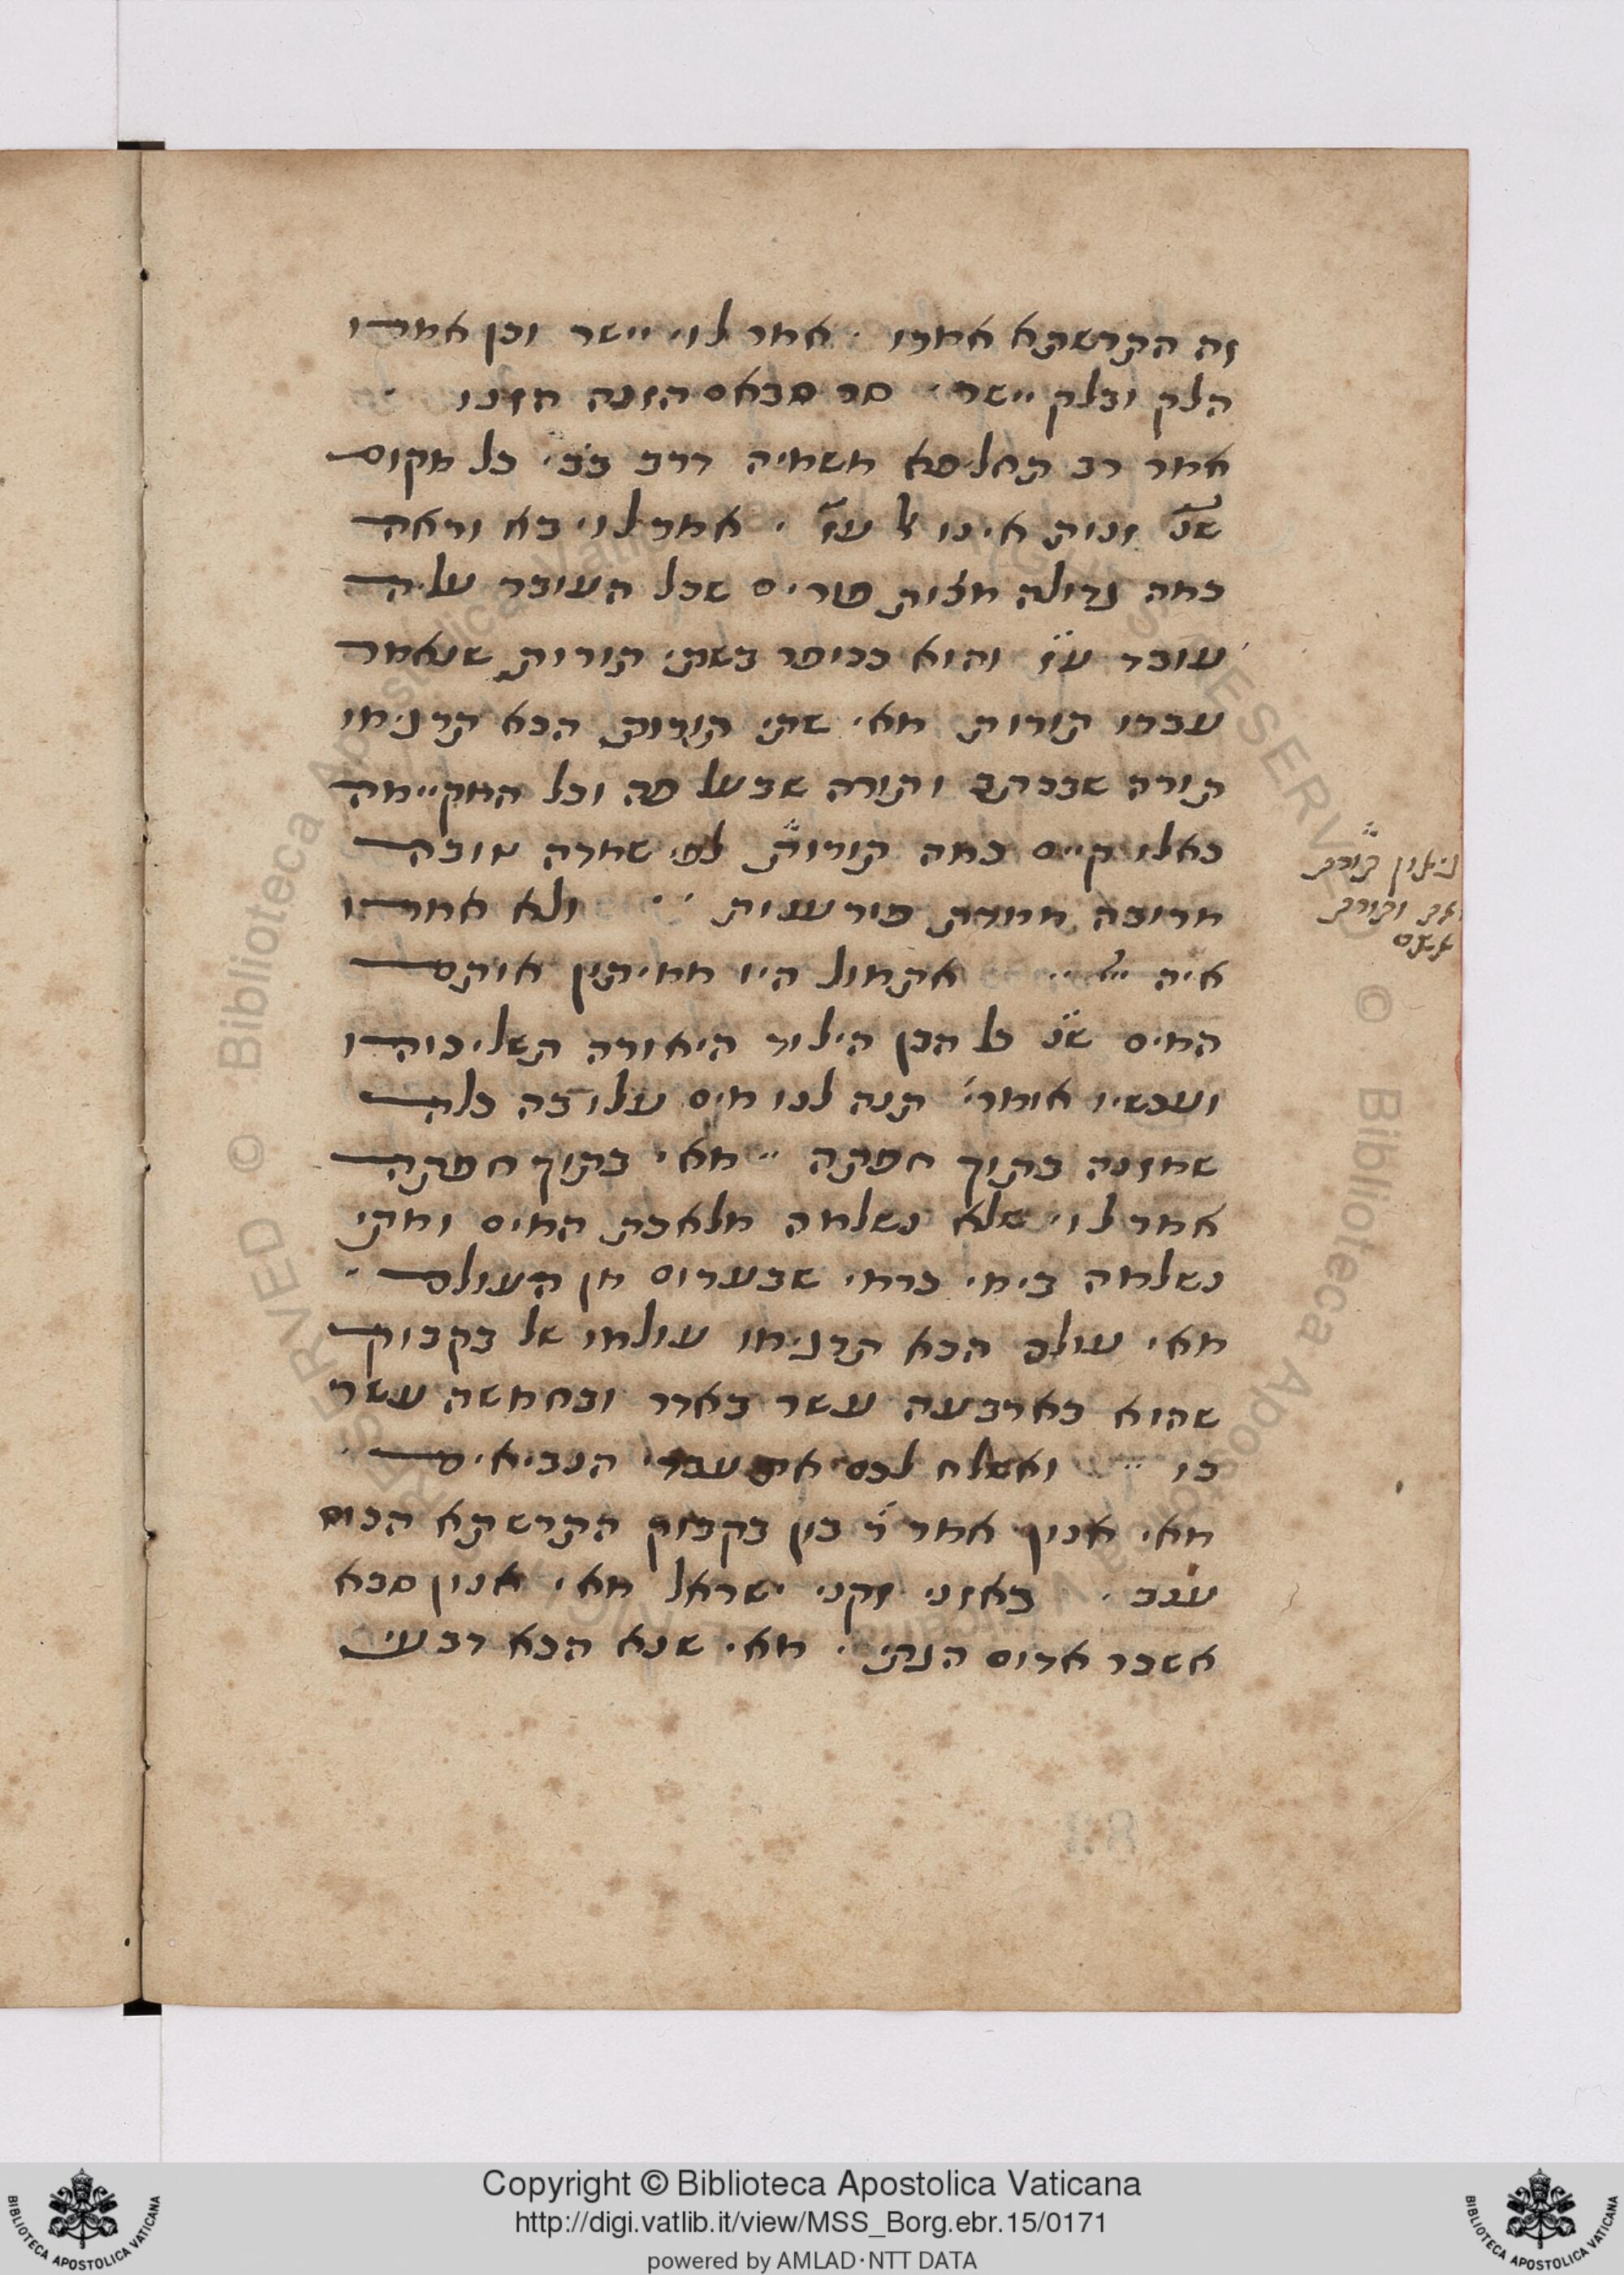 זה התרשתא אמרו · אמר לוי יישר וכן אמרו
הלק ובלק יישר · סר סבאם הזנה הזנו
אמר רב תחליפא משמיה דרב ביבי כל מקום
שנ׳ זנות אינו אלא ע״ז · אמר לוי בא וראה
כמה גדולה מצות פורים שכל העובר עליה
עובד ע״ז והוא ככופר בשתי תורות שנאמר
עברו תורות מאי שתי תורות הכא תרגימו
תורה שבכתב ותורה שבעל פה וכל המקיימה
כאלו קיים כמה תורות לפי שמדה טובה
מרובה ממדת פורענות · ולא אמרו
איה ייי אתמול היו ממיתין אותם
המים שנ׳ כל הבן הילוד היאורה תשליכוהו
ועכשיו אומרי׳ תנה לנו מים עלובה כלה
שמזנה בתוך חפתה · מאי בתוך חפתה
אמר לוי שלא נשלמה מלאכת המים ומתי
נשלמה בימי כרמי שבערום מן העולם ·
מאי עולם הכא תרגימו עולמו של בקבוק
שהוא בארבעה עשר באדר ובחמשה עשר
בו · ואשלח לכם את עבדי הנביאים
מאי אנון אמר ר׳ בון בקבוק התרשתא הכום
ענב · באזני זקני ישראל מאי אנון סבא
אשכר אדום הגתי · מאי שנא הכא דבעי
ניאוץ תורה
את ותורה
אתם
Copyright © Biblioteca Apostolica Vaticana
http://digi.vatlib.it/view/MSS_Borg.ebr.15/0171
powered by AMLAD·NTT DATA
BIBLIOTECA APOSTOLICA VATICANA
BIBLIOTECA APOSTOLICA VATICANA